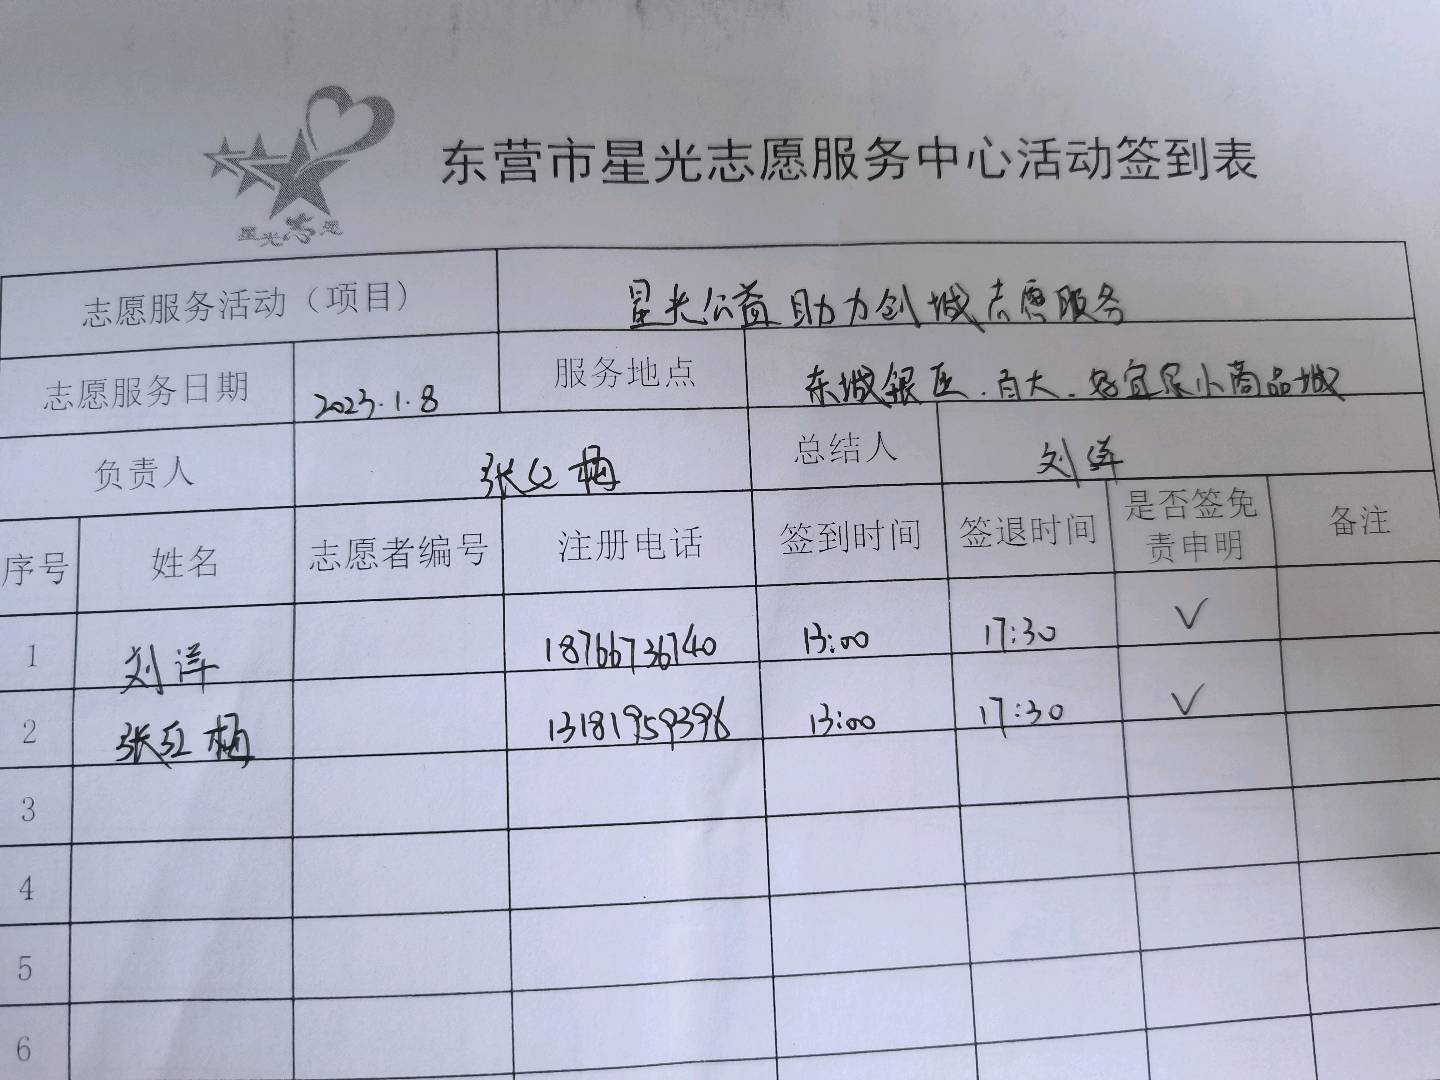 星光志愿
东营市星光志愿服务中心活动签到表
志愿服务活动（项目） 星光公益助力创城志愿服务
志愿服务日期 2023.1.8 服务地点 东城银座.百大.好宜家小商品城
负责人 张红梅 总结人 刘洋
序号 姓名 志愿者编号 注册电话 签到时间 签退时间 是否签免
责申明 备注
1 刘洋 18766736740 13:00 17:30 ✓
2 张红梅 13181959396 13:00 17:30 ✓
3
4
5
6